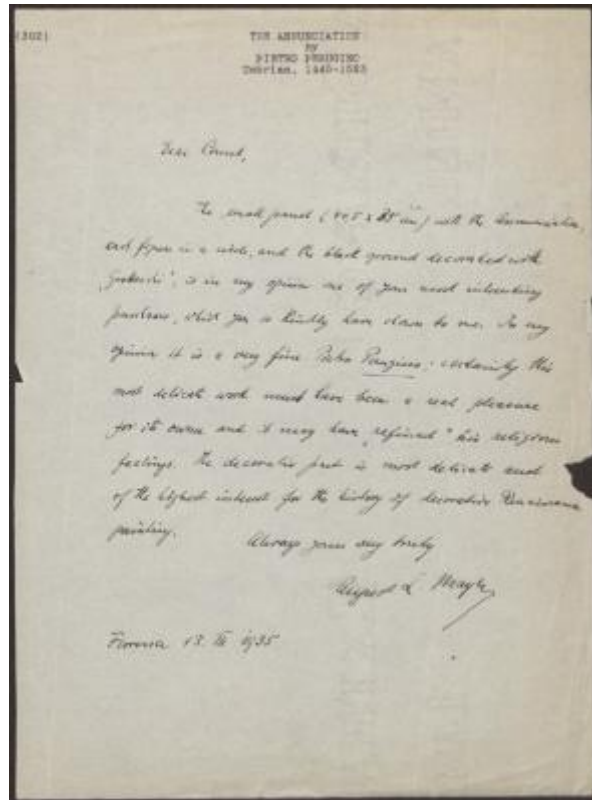 (302)
THE ANNUNCIATION
BY
PIETRO PERUGINO
Umbrian, 1445-1523
Dear Count,
The small panel ( x ) with the Annunciation,
each figure in a circle, and the black ground decorated with
is in my opinion one of your most interesting
pictures, which you so kindly have shown to me. In my
opinion it is a very fine Pietro Perugino; certainly this
most delicate work must have been a real pleasure
for its owner and it may have „refined" his religious
feelings. The decorative part is most delicate and
of the highest interest for the history of decorative Renaissance
painting.
Always yours very truly
August L. Mayer
13. III 1935